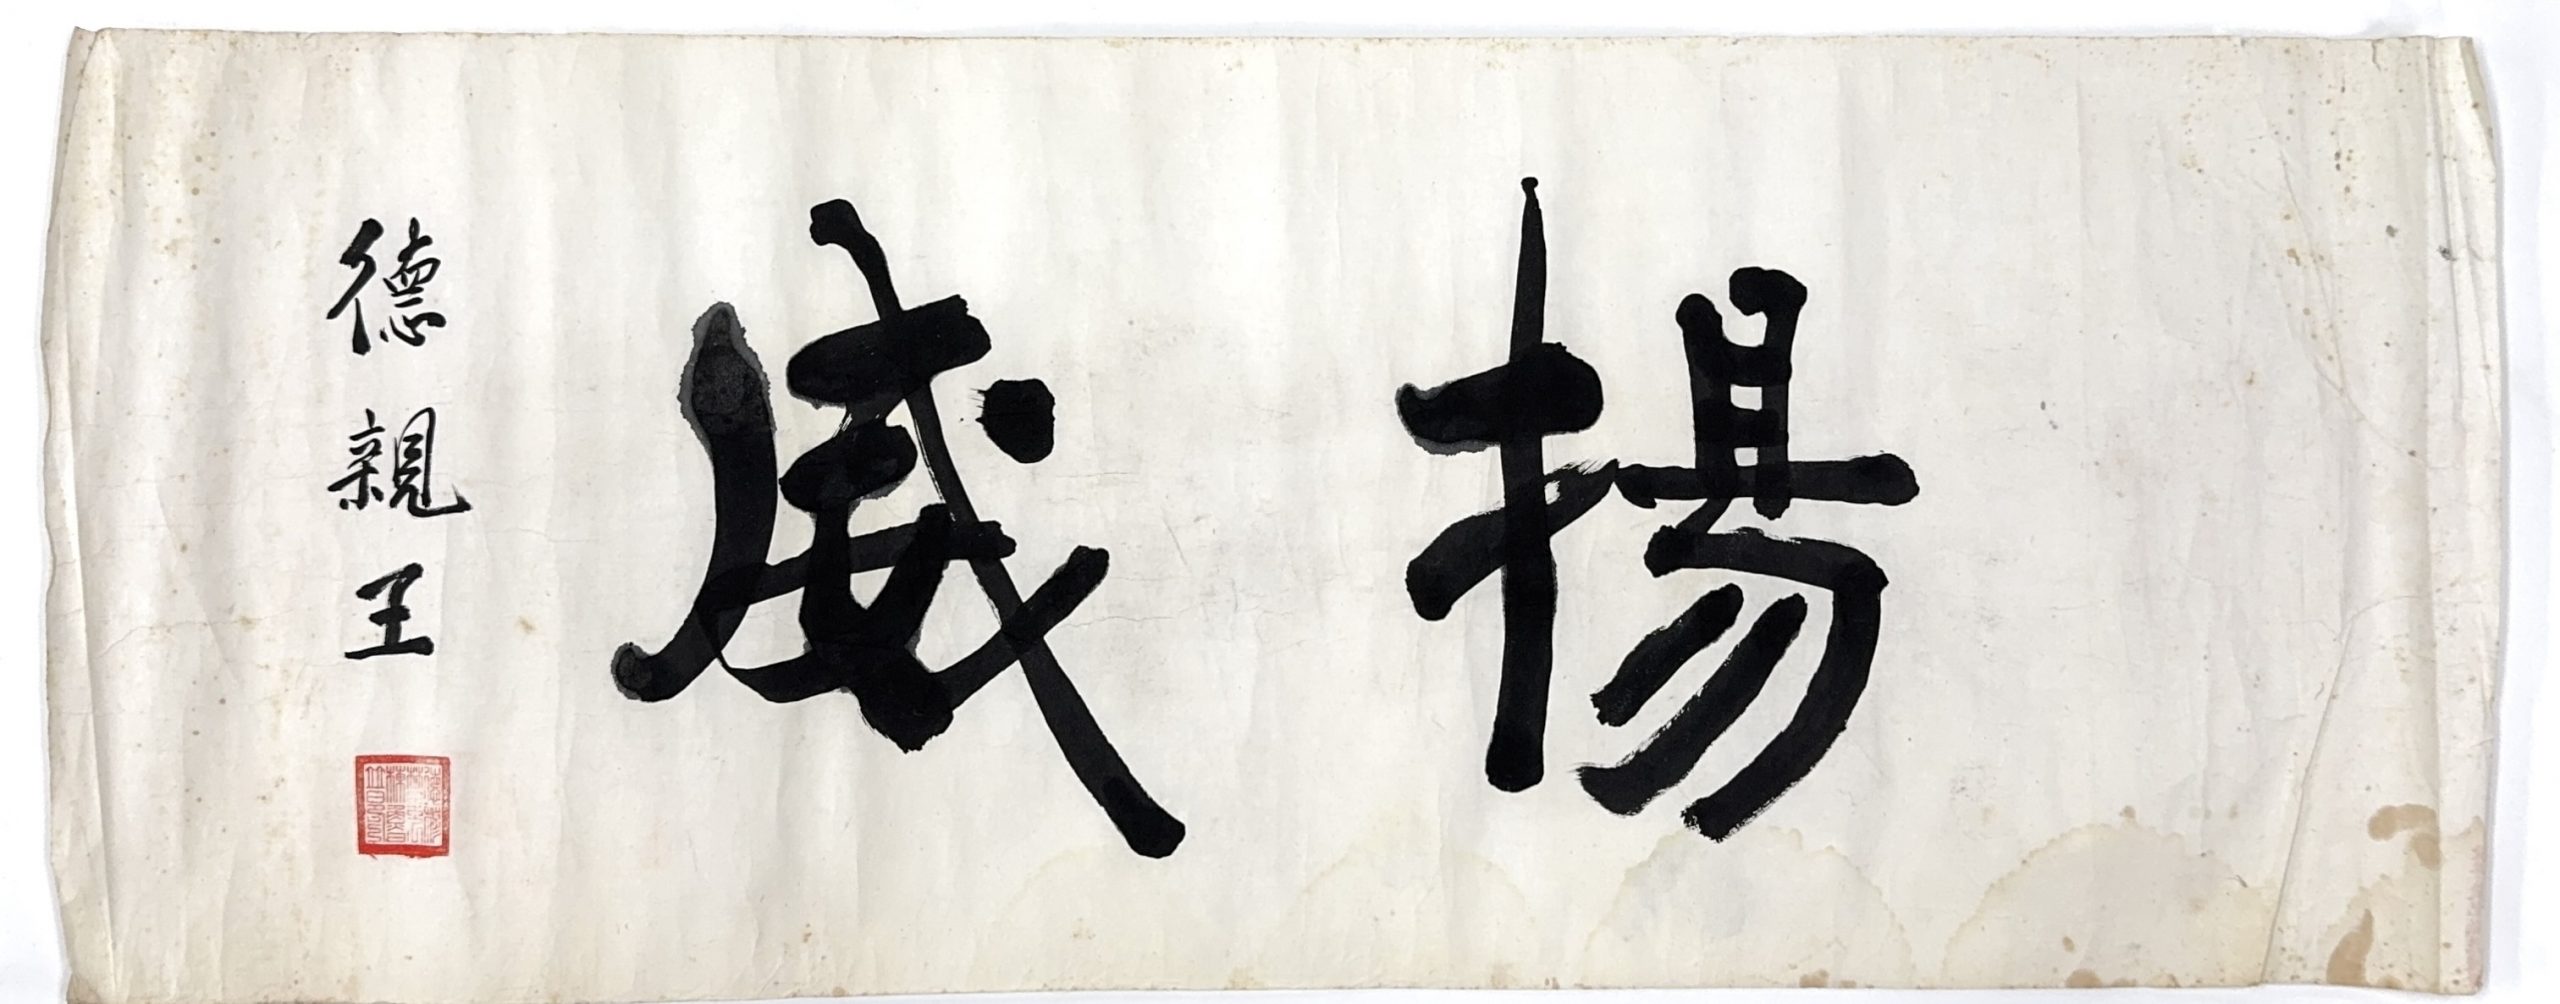 揚威
德親王